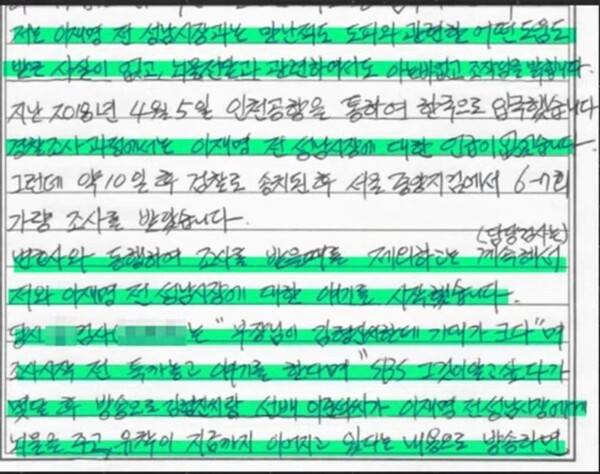 저는 이재명 전 성남시장과는 만난적도 도피와 관련한 어떤 도움도
받은 사실이 없고, 뇌물전달과 관련하여서도 아는바 없고 조작됨을 밝힙니다.
지난 2018년 4월 5일 인천공항을 통하여 한국으로 입국했습니다
경찰조사 과정에서는 이재명 전 성남시장에 대한 언급이 없었습니다.
그런데 약 10일 후 검찰로 송치된 후 서울중앙지검에서 6-7회
가량 조사를 받았습니다.
변호사와 동행하여 조사를 받을때를 제외하고는 (담당검사는) 계속해서
저와 이재명 전 성남시장에 대한 얘기를 시작했습니다.
당시 검사( )는 "부장님이 김형진씨한테 기대가 크다"며
조사시작 전 툭까놓고 얘기를 한다며 "SBS 그것이알고싶다가
몇달 후 방송으로 김형진씨랑 선배 이준석씨가 이재명 전 성남시장에게
뇌물을 주고, 유착이 지금까지 이어지고 있다는 내용으로 방송하면